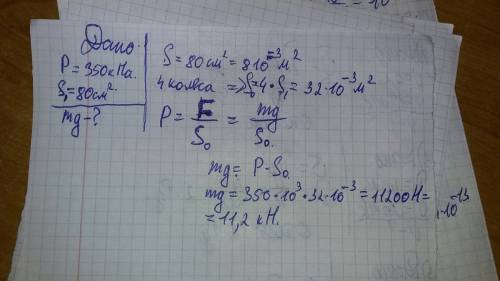 Дано:
P = 350 кПа.
S₁ = 80 см²
mg - ?
S = 80 см² = 8·10⁻³ м²
4 колеса => S₀ = 4·S₁ = 32·10⁻³ м²
P = F/S₀ = mg/S₀.
mg = P·S₀.
mg = 350·10³·32·10⁻³ = 11200 Н =
= 11,2 кН.
·10⁻¹³